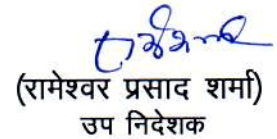 (रामेश्वर प्रसाद शर्मा)
उप निदेशक